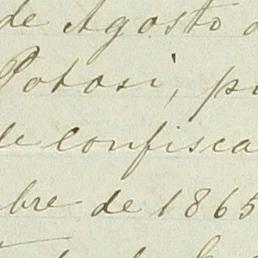 de Agosto d
Potosi, p
de confisca
bre de 1865